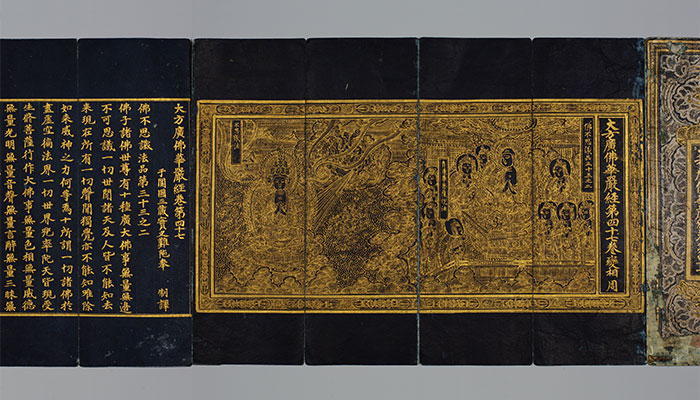 大方廣佛華嚴經第四十七卷變相 周
大方廣佛華嚴經卷第四十七
于闐國三藏實叉難陀奉 制譯
佛不思議法品第三十三之二
佛子諸佛世尊有十種廣大佛事無量無邊
不可思議一切世間諸天及人皆不能知去
來現在所有一切聲聞獨覺亦不能知唯除
如來威神之力何等為十所謂一切諸佛於
盡虛空徧法界一切世界兜率陀天皆現受
生修菩薩行作大佛事無量色相無量威德
無量光明無量音聲無量言辭無量三昧無